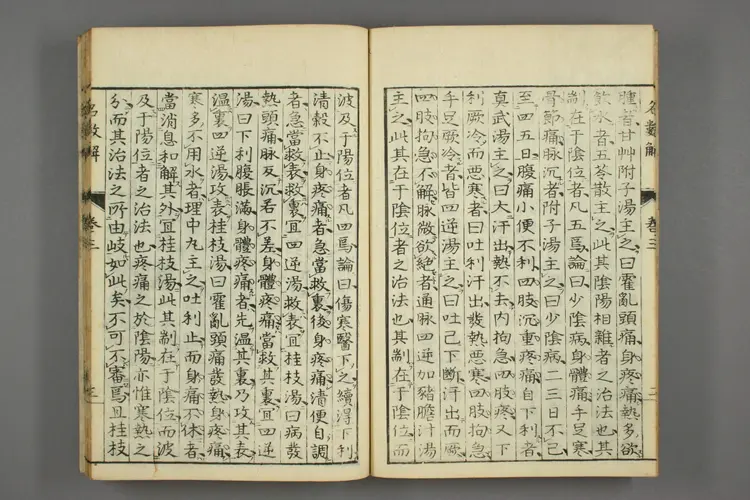 名數解 卷三 二
腫者甘艸附子湯主之曰霍亂頭痛身疼痛熱多欲
飲水者五苓散主之此其陰陽相雜者之治法也其
劑在于陰位者凡五焉論曰少陰病身體痛手足寒
骨節痛脈沉者附子湯主之曰少陰病二三日不已
至四五日腹痛小便不利四肢沉重疼痛自下利者
真武湯主之曰大汗出熱不去内拘急四肢疼又下
利厥冷而惡寒者曰吐利汗出發熱惡寒四肢拘急
手足厥冷者皆四逆湯主之曰吐已下斷汗出而厥
四肢拘急不解脈微欲絶者通脈四逆加豬膽汁湯
主之此其在于陰位者之治法也其劑在于陰位而
波及于陽位者凡四焉論曰傷寒醫下之續得下利
清穀不止身疼痛者急當救裏後身疼痛清便自調
者急當救表救裏宜四逆湯救表宜桂枝湯曰病發
熱頭痛脈反沉若不差身體疼痛當救其裏宜四逆
湯曰下利腹脹滿身體疼痛者先温其裏乃攻其表
温裏四逆湯攻表桂枝湯曰霍亂頭痛發熱身疼痛
寒多不用水者理中丸主之吐利止而身痛不休者
當消息和解其外宜桂枝湯此其劑在于陰位而波
及于陽位者之治法也疼痛之於陰陽亦惟寒熱之
分而其治法之所由岐如此矣不可不審焉且桂枝
名數解 卷三 三